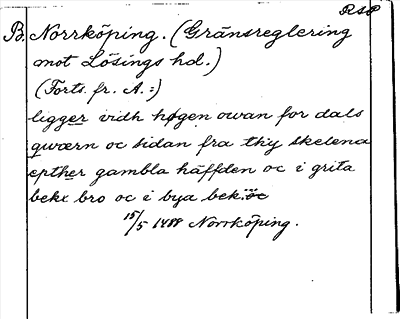 RAP
B. Norrköping. (Gränsreglering
mot Lösings hd.)
(Forts. fr. A. :)
ligger vidh høgen owan for dals
qwærn oc sidan fra thy skelena
epther gambla häffden oc i grita
bekx bro oc i bya bek:oc
15/5 1488 Norrköping.